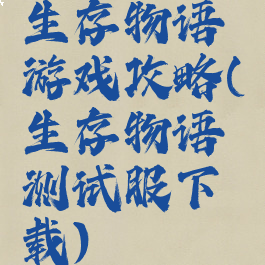 生存物语
游戏攻略(
生存物语
测试服下
载)